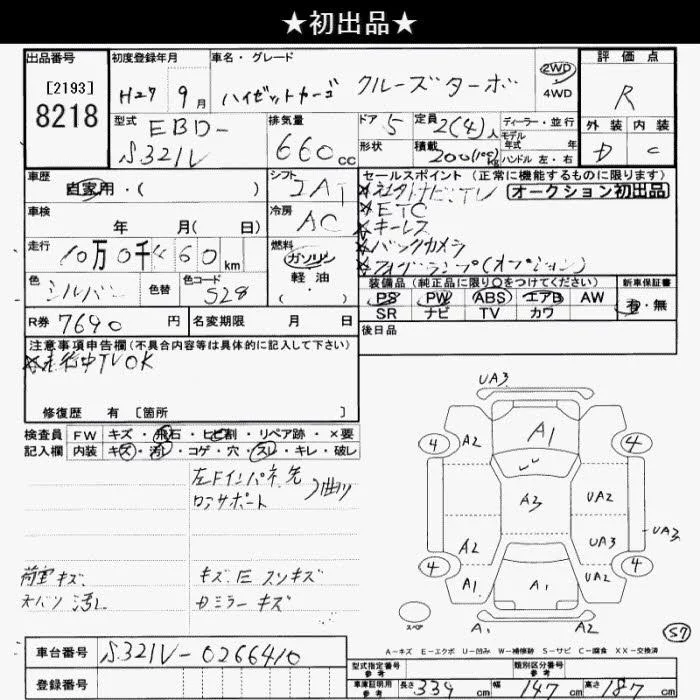 ★初出品★
出品番号 [2193] 8218
初度登録年月 H27 9月
車名・グレード ハイゼットカーゴ クルーズターボ
2WD 4WD
評価点 R
外装 内装
D C
型式 EBD-S321V
排気量 660cc
ドア 5
形状
定員 2(4)人
積載 200(100)kg
ディーラー・並行
モデル年式 年
ハンドル 左・右
車歴 自家用・( )
シフト
冷房 AC
セールスポイント (正常に機能するものに限ります)
オークション初出品
☆ETC
☆キーレス
☆バックカメラ
☆フォグランプ(オプション)
車検 年 月( 日)
走行 10万0千 60km
燃料 ガソリン 軽油・( )
色 シルバー 色替 色コード S28
装備品 (純正品に限り○をつけてください) 新車保証書
PS PW ABS エアB AW 有・無
SR ナビ TV カワ
R券 7690円 名変期限 月 日
後日品
注意事項申告欄(不具合内容等は具体的に記入して下さい)
☆走行中TVOK
修復歴 有 [箇所 ]
検査員記入欄 FW キズ・飛石・ヒビ割・リペア跡・×要
内装 キズ・汚レ・コゲ・穴・スレ・キレ・破レ
左Fインパネ先
コアサポート 曲り
荷室キズ キズ E スリキズ
天バリ汚レ ミラーキズ
UA3
4 A2 A1 4
A3 UA2
A2 UA3 UA3
4 A1 A1 UA2 4
スペア A1 A2 S7
A-キズ E-エクボ U-凹み W-補修跡 S-サビ C-腐食 XX-交換済
車台番号 S321V-0266410
登録番号
型式指定番号 参考 類別区分番号 参考
車庫証明用 参考 長さ 339cm 幅 147cm 高さ 187cm